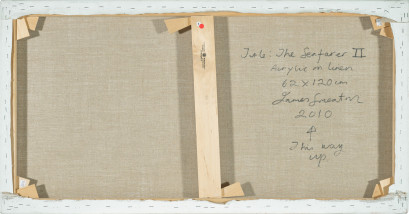 Title: The Seafarer II
Acrylic on linen
62 x 120 cm
James
2010
This way
up